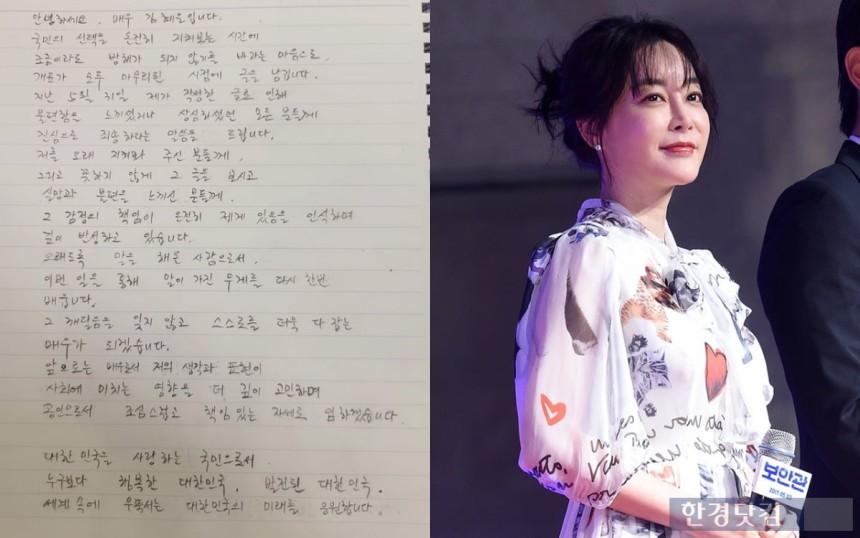 안녕하세요. 배우 김혜은입니다.
국민의 선택을 온전히 지켜보는 시간에
조금이라도 방해가 되지 않기를 바라는 마음으로,
개표가 모두 마무리된 시점에 글을 남깁니다.
지난 5월 31일 제가 작성한 글로 인해
불편함을 느끼셨거나 상심하셨던 모든 분들께
진심으로 죄송하다는 말씀을 드립니다.
저를 오래 지켜봐 주신 분들께,
그리고 뜻하지 않게 그 글을 보시고
실망과 불편을 느끼신 분들께.
그 감정의 책임이 온전히 제게 있음을 인식하며
깊이 반성하고 있습니다.
오래도록 말을 해온 사람으로서,
이번 일을 통해 말이 가진 무게를 다시 한번
배웁니다.
그 깨달음을 잊지 않고 스스로를 더욱 다 잡는
배우가 되겠습니다.
앞으로는 배우로서 저의 생각과 표현이
사회에 미치는 영향을 더 깊이 고민하며
공인으로서 조심스럽고 책임 있는 자세로 임하겠습니다.
대한민국을 사랑하는 국민으로서
누구보다 행복한 대한민국, 발전된 대한민국,
세계 속에 우뚝서는 대한민국의 미래를 응원합니다.
보안관
한경닷컴